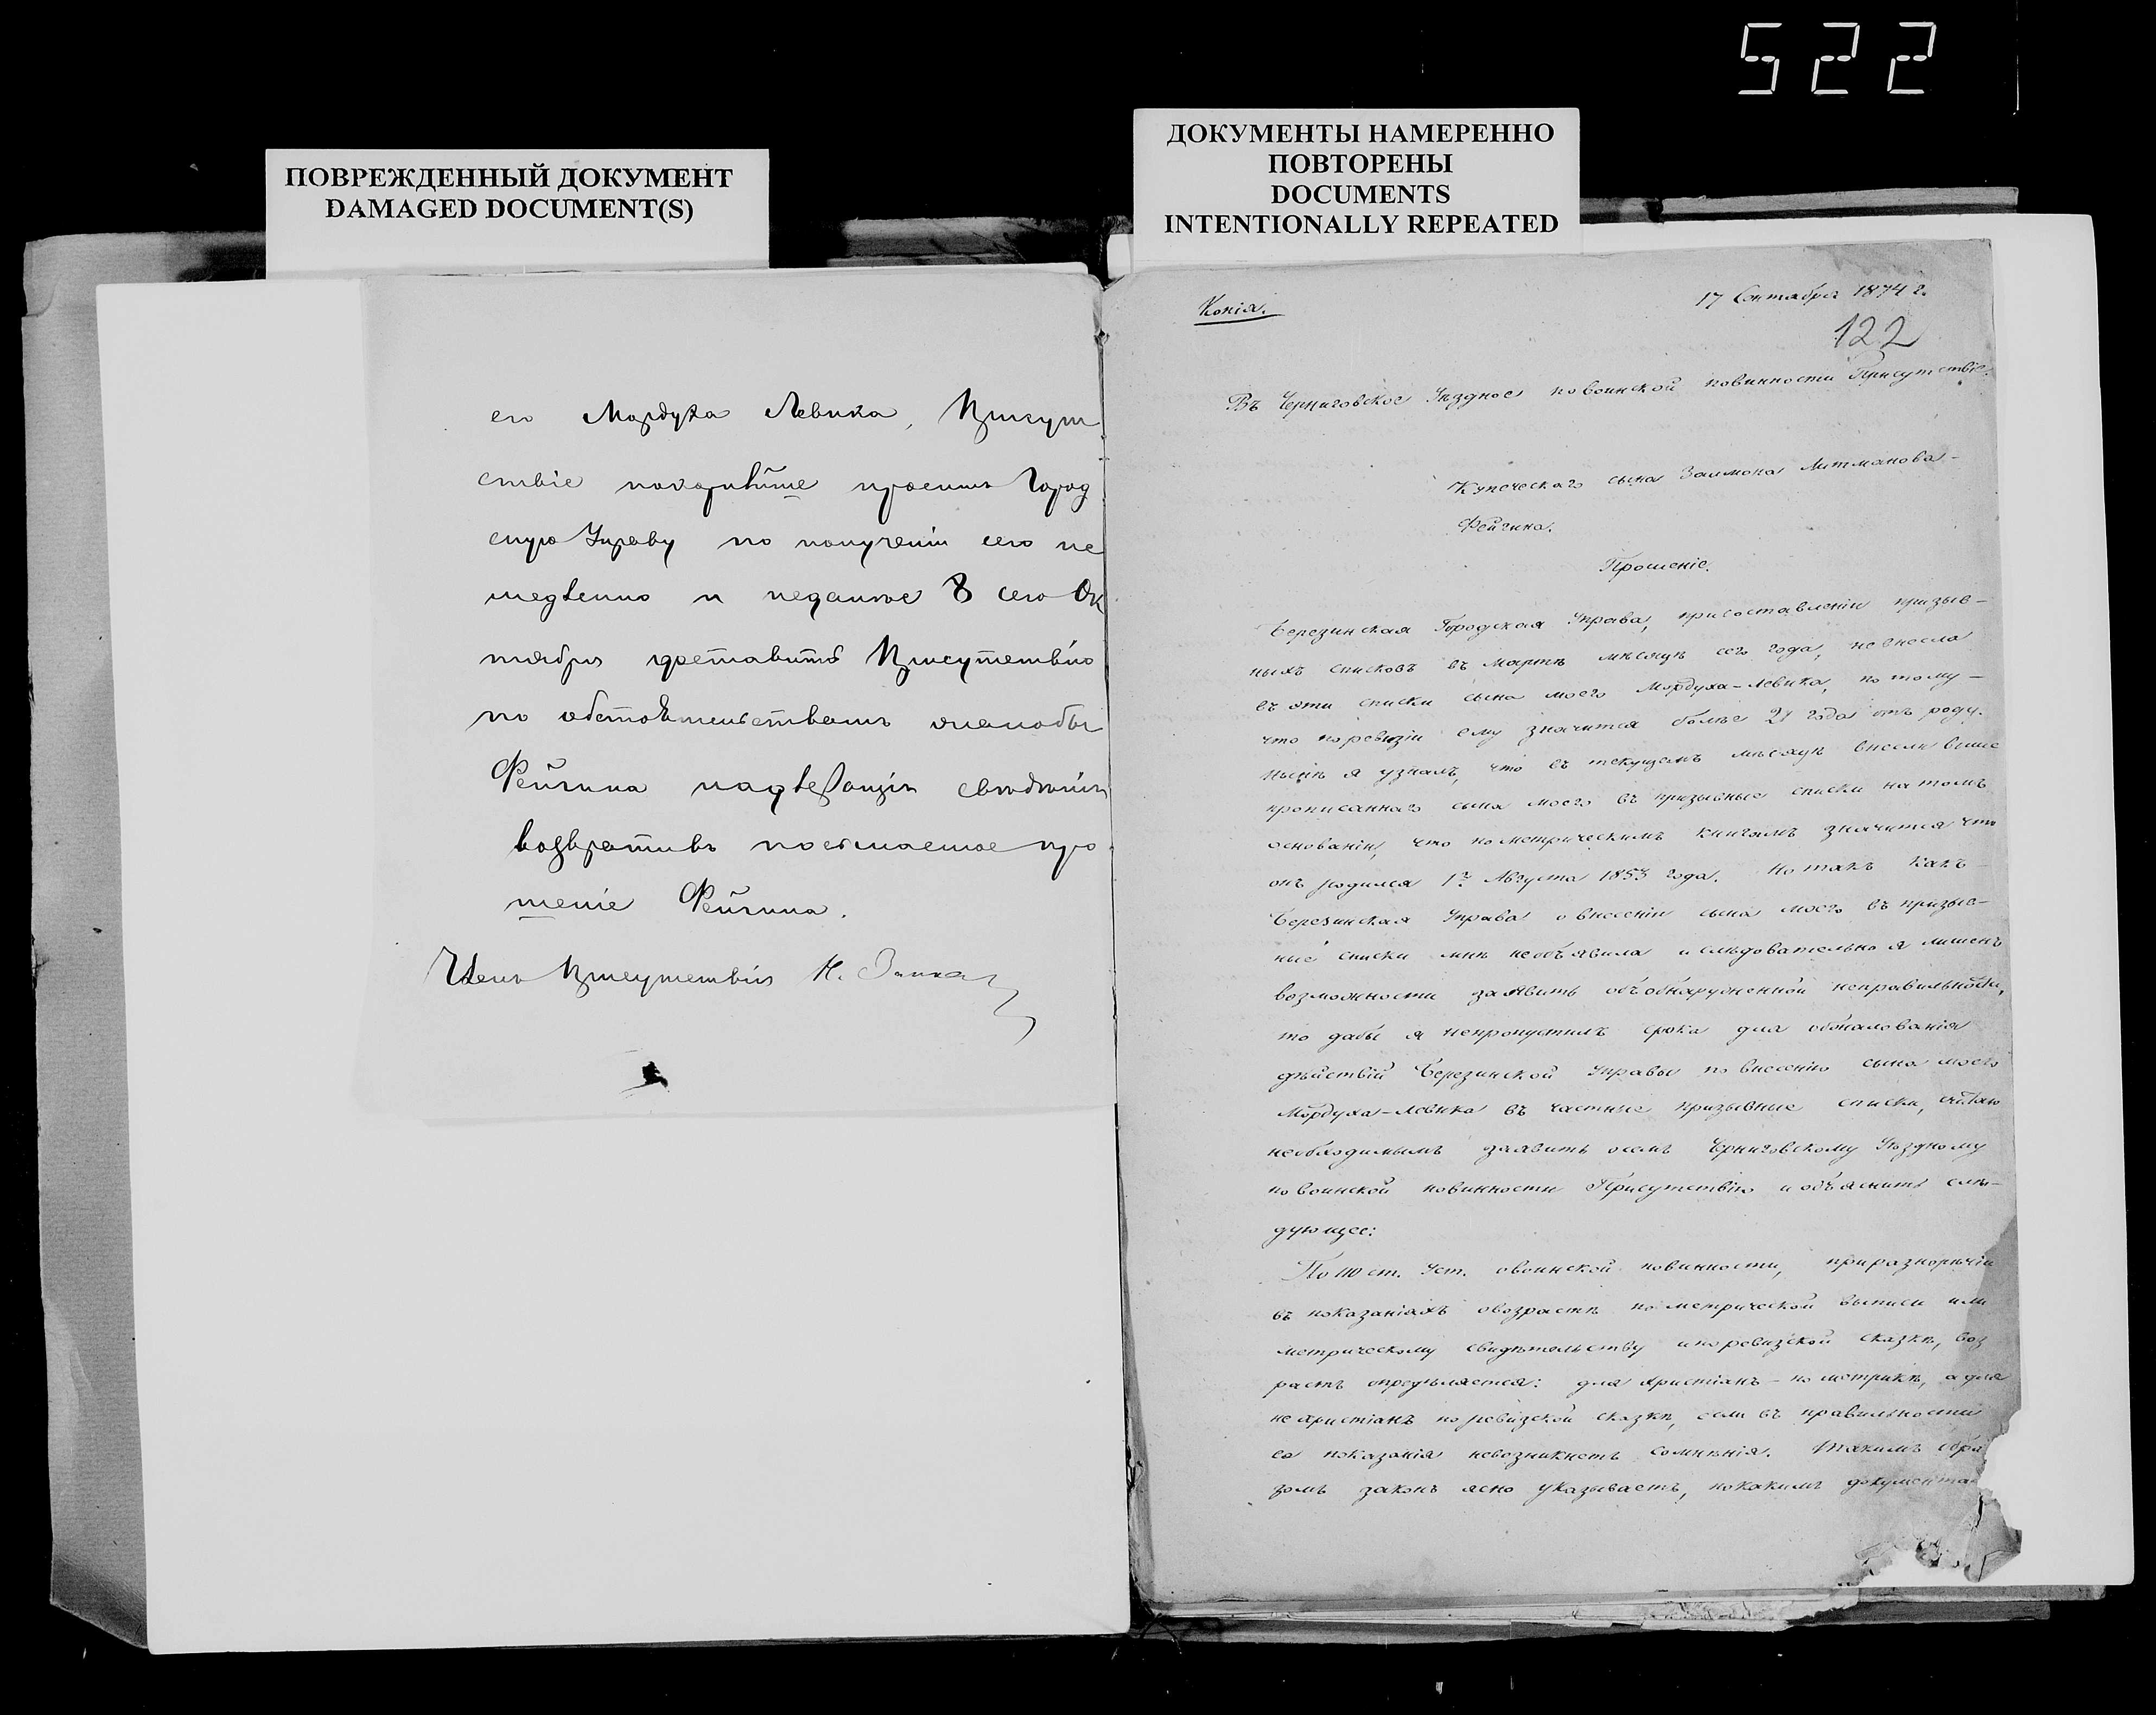 522
ПОВРЕЖДЕННЫЙ ДОКУМЕНТ
DAMAGED DOCUMENT(S)
ДОКУМЕНТЫ НАМЕРЕННО
ПОВТОРЕНЫ
DOCUMENTS
INTENTIONALLY REPEATED
его Мордуха Левика, Присут
ствіе покорнѣйше проситъ Город
скую Управу по полученіи сего не
медленно и не далѣе 8 сего Ок
тября доставить Присутствію
по обстоятельствамъ жалобы
Фейгина надлежащія свѣдѣнія
возвративъ посылаемое про
шеніе Фейгина.
Членъ Присутствія Н.
Копія.
17 Сентября 1874 г.
122
Въ Черниговское Уѣздное по воинской повинности Присутствіе.
Купеческаго сына Залмона Литманова
Фейгина.
Прошеніе.
Березинская Городская Управа, при составленіи призыв-
ныхъ списковъ въ Мартѣ мѣсяцѣ сего года, не внесла
въ эти списки сына моего Мордуха-Левика, потому-
что по ревизіи ему значится болѣе 21 года отъ роду.
Нынѣ я узналъ, что въ текущемъ мѣсяцѣ внесли выше
прописаннаго сына моего въ призывные списки на томъ
основаніи, что по метрическимъ книгамъ значится что
онъ родился 1го Августа 1853 года. Но такъ какъ
Березинская Управа о внесеніи сына моего въ призыв-
ные списки мнѣ необъявила и слѣдовательно я лишенъ
возможности заявить объ обнаруженной неправильности,
то дабы я непропустилъ срока для обжалованія
дѣйствій Березинской Управы по внесенію сына моего
Мордуха-Левика въ частные призывные списки, считаю
необходимымъ заявить осемъ Черниговскому Уѣздному
по воинской повинности Присутствію и объяснить слѣ-
дующее:
По 110 ст. Уст. о воинской повинности, при разнорѣчіи
въ показаніяхъ о возрастѣ по метрической выписи или
метрическому свидѣтельству и по ревизской сказкѣ, воз
растъ опредѣляется: для христіанъ - по метрикѣ, а для
не христіанъ по ревизской сказкѣ, если въ правильности
ея показанія невозникнетъ сомнѣнія. Такимъ обра
зомъ законъ ясно указываетъ, по какимъ документа